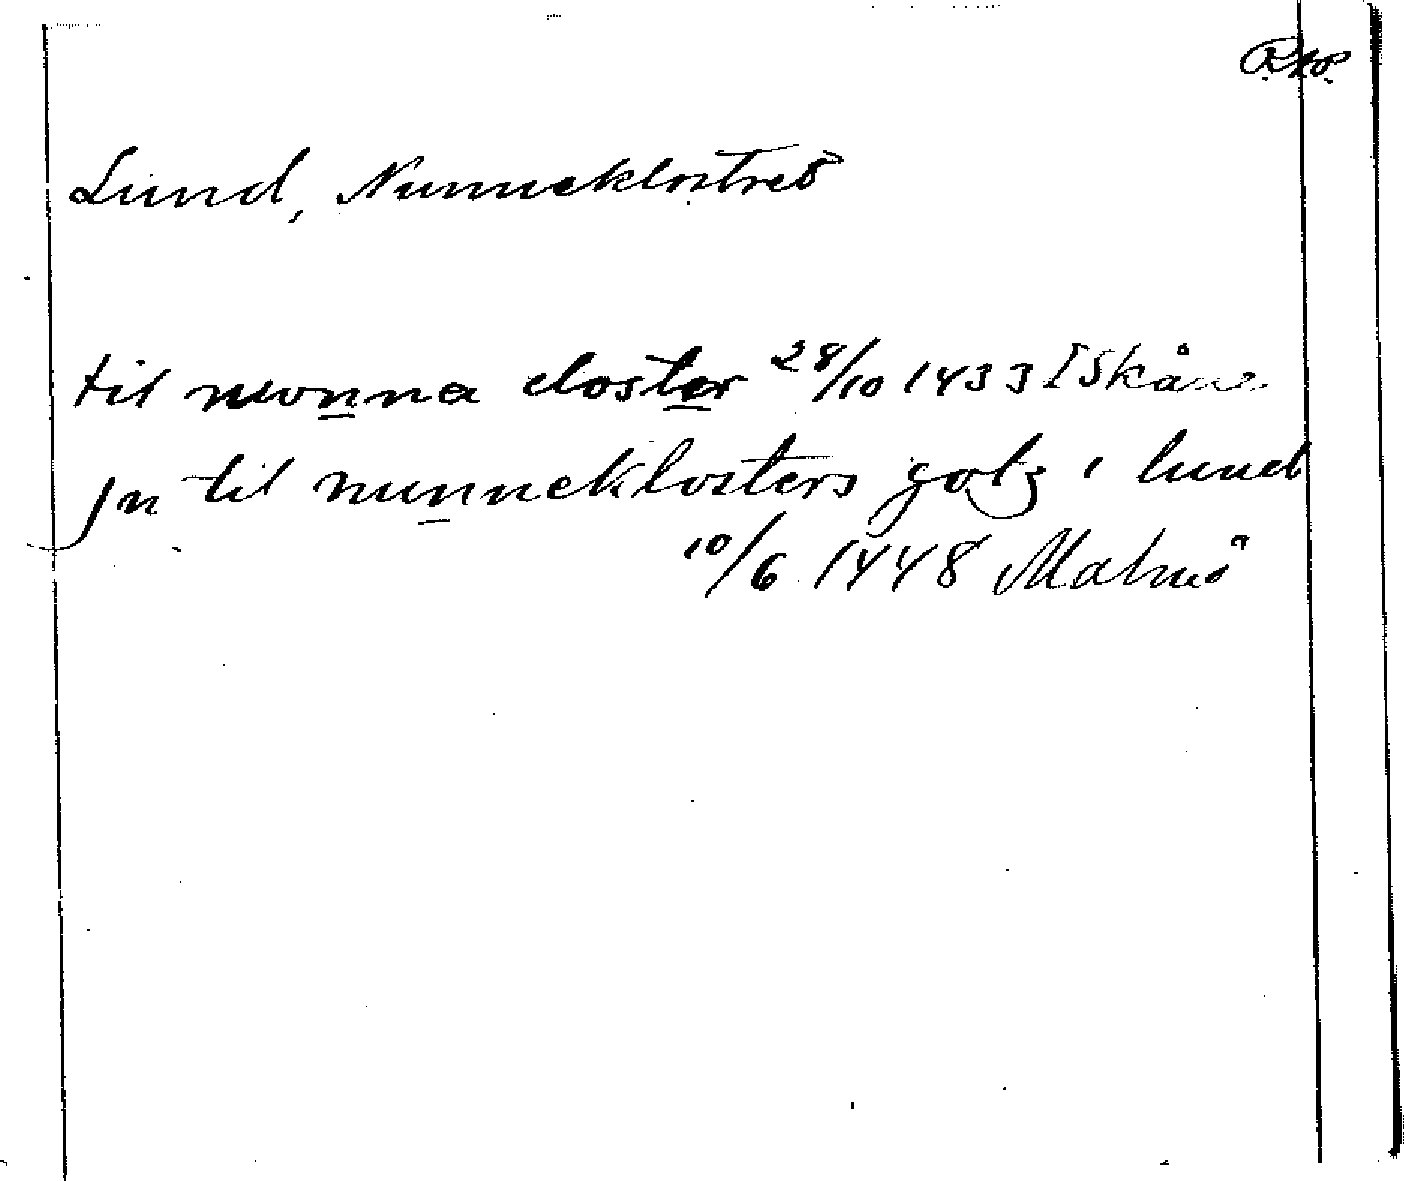 RAP.
Lund, Nunneklostret
til nwonna closter 28/10 1433 [Skåne
jn til nunneklosters gotz i lund
10/6 1448 Malmö